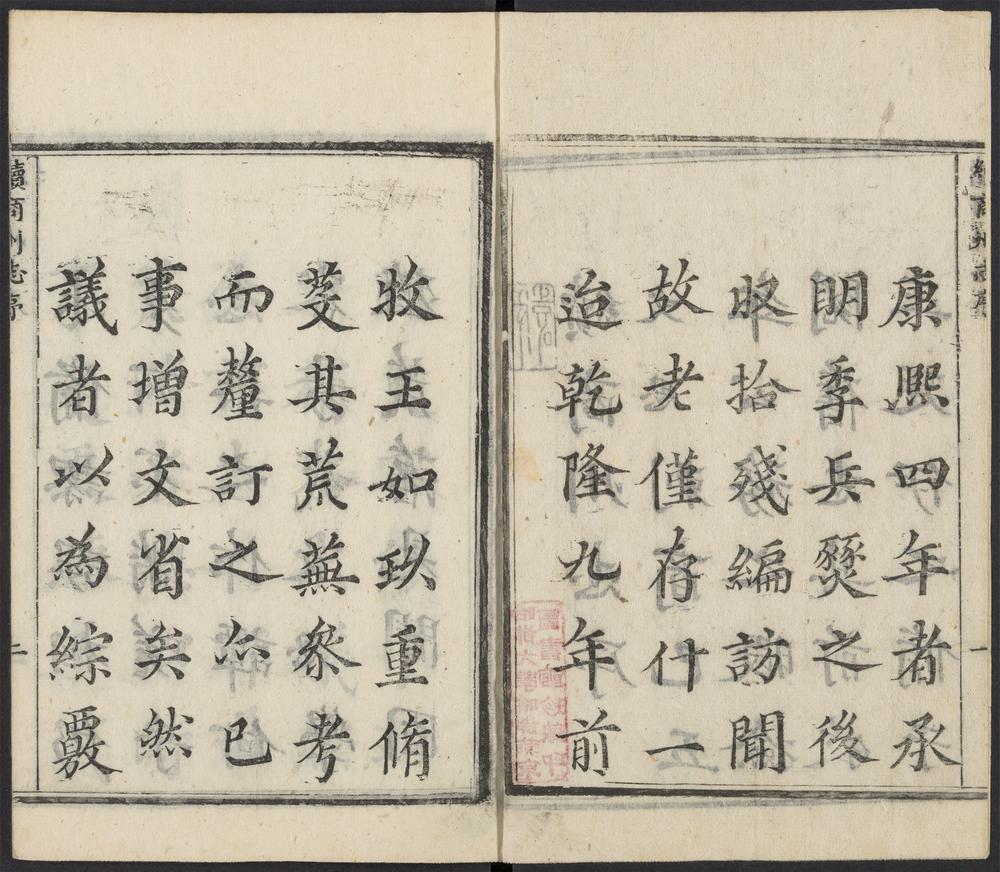 康熙四年者承
明季兵燹之後
收拾殘編訪聞
故老僅存什一
迨乾隆九年前
牧王如玖重脩
芟其荒蕪叅考
而釐訂之亦已
事增文省矣然
議者以為綜覈
續商州志序
一
續商州志序
二